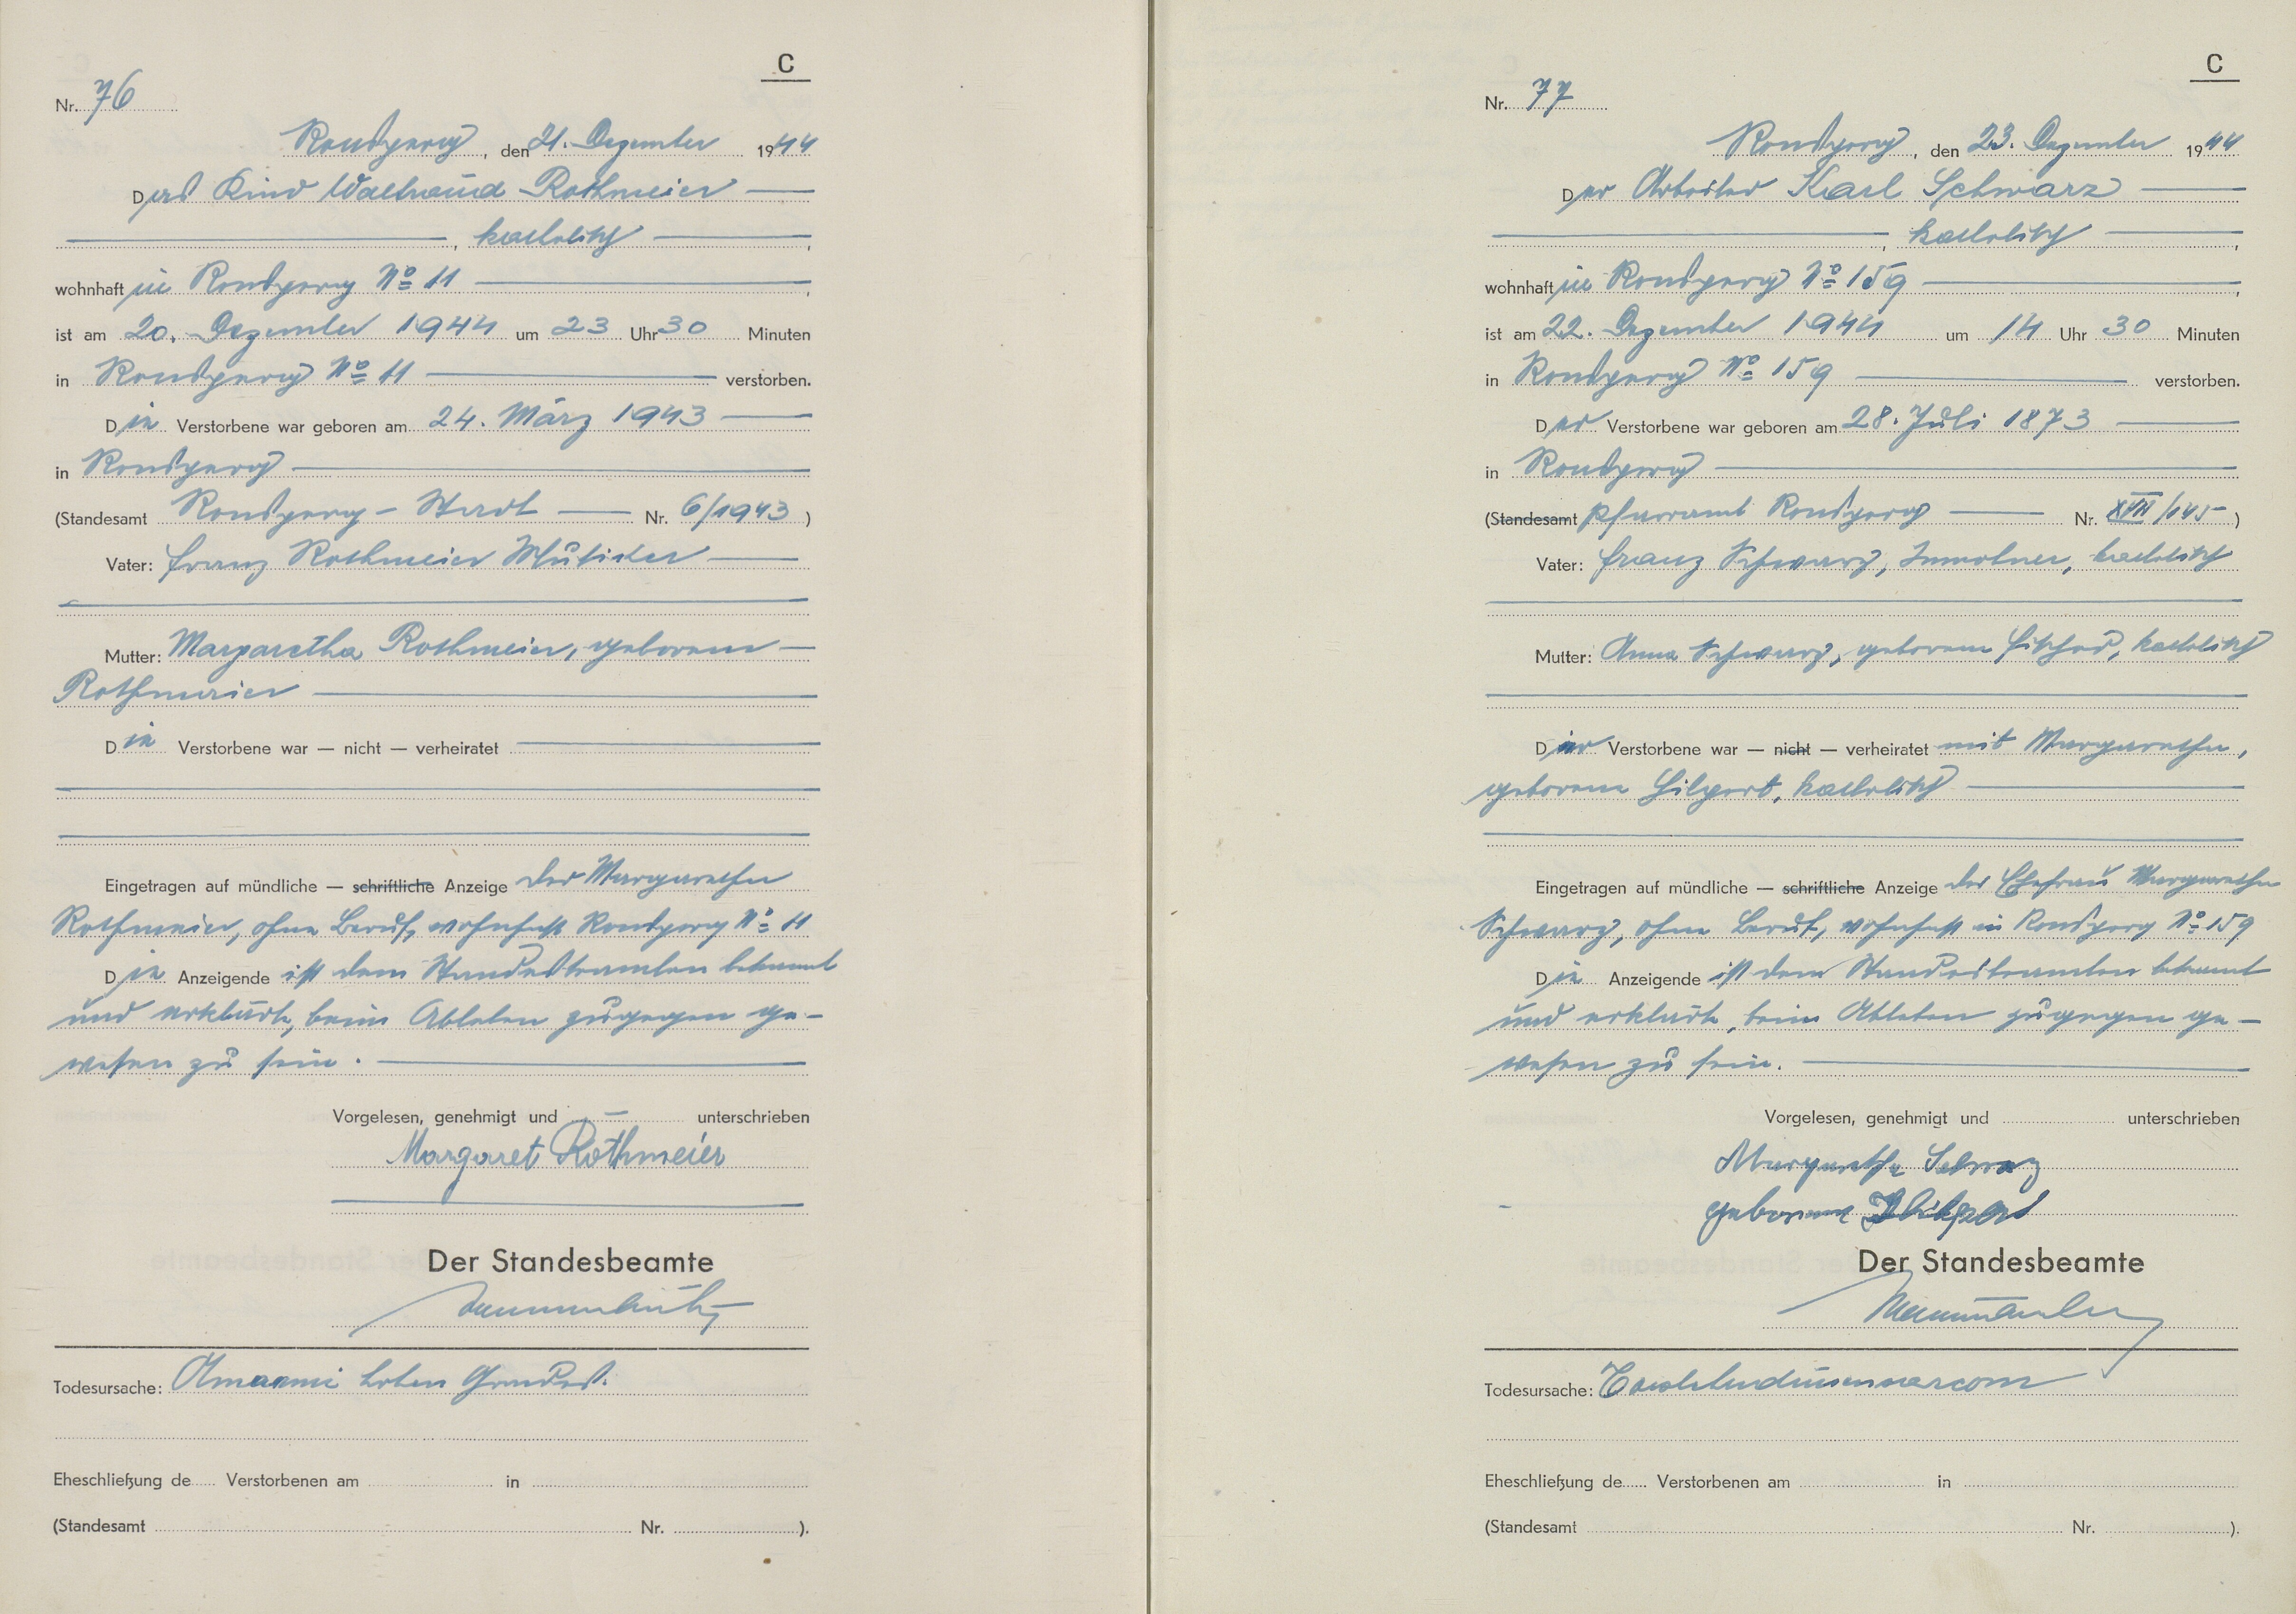 C
Nr. 76
Ronsperg, den 21. Dezember 1944
Das Kind Waltraud Rothmeier
, katholisch ,
wohnhaft in Ronsperg No 11 ,
ist am 20. Dezember 1944 um 23 Uhr 30 Minuten
in Ronsperg No 11 verstorben.
Die Verstorbene war geboren am 24. März 1943
in Ronsperg
(Standesamt Ronsperg-Stadt Nr. 6/1943 )
Vater: Franz Rothmeier Musiker
Mutter: Margaretha Rothmeier, geborene
Rothmeier
Die Verstorbene war — nicht — verheiratet
Eingetragen auf mündliche — schriftliche Anzeige der Margarethe
Rothmeier, ohne Beruf, wohnhaft Ronsperg No 11
Die Anzeigende ist dem Standesbeamten bekannt
und erklärt, beim Ableben zugegen ge-
wesen zu sein.
Vorgelesen, genehmigt und — unterschrieben
Margaret Rothmeier
Der Standesbeamte
Todesursache: hohen Grades.
Eheschließung de Verstorbenen am in
(Standesamt Nr. ).
C
Nr. 77
Ronsperg, den 23. Dezember 1944
Der Arbeiter Karl Schwarz
, katholisch ,
wohnhaft in Ronsperg No 159 ,
ist am 22. Dezember 1944 um 14 Uhr 30 Minuten
in Ronsperg No 159 verstorben.
Der Verstorbene war geboren am 28. Juli 1873
in Ronsperg
(Standesamt Pfarramt Ronsperg Nr. XVIII/145 )
Vater: Franz Schwarz, Inwohner, katholisch
Mutter: Anna Schwarz, geborene Fischer, katholisch
Der Verstorbene war — nicht — verheiratet mit Margarethe,
geborene Hilpert, katholisch
Eingetragen auf mündliche — schriftliche Anzeige der Ehefrau Margarethe
Schwarz, ohne Beruf, wohnhaft in Ronsperg No 159
Die Anzeigende ist dem Standesbeamten bekannt
und erklärt, beim Ableben zugegen ge-
wesen zu sein.
Vorgelesen, genehmigt und unterschrieben
Margarethe Schwarz
geborene
Der Standesbeamte
Todesursache:
Eheschließung de Verstorbenen am in
(Standesamt Nr. ).